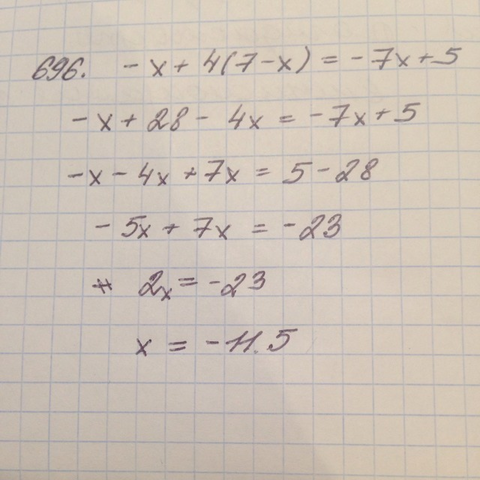 696. -x + 4(7-x) = -7x+5
-x + 28 - 4x = -7x + 5
-x - 4x + 7x = 5 - 28
-5x + 7x = -23
2x = -23
x = -11.5